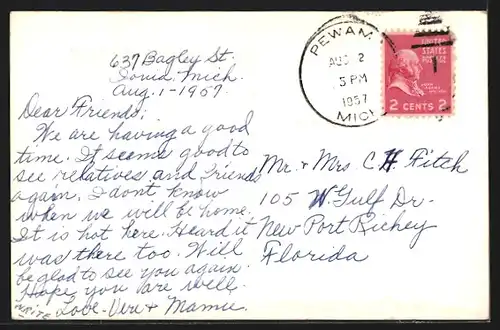 637 Bagley St.
Ionia, Mich.
Aug. 1-1957.
Dear Friends;
We are having a good
time. It seems good to
see relatives and friends
again. I dont know
when we will be home.
It is hot here. Heard it
was there too. Will
be glad to see you again.
Hope you are well.
write Love - Vere + Mamie.
PEWAMO
AUG 2
5 PM
1957
MICH
UNITED
STATES
POSTAGE
2 CENTS 2
Mr. + Mrs C H Fitch
105 W. Gulf Dr.
New Port Richey
Florida